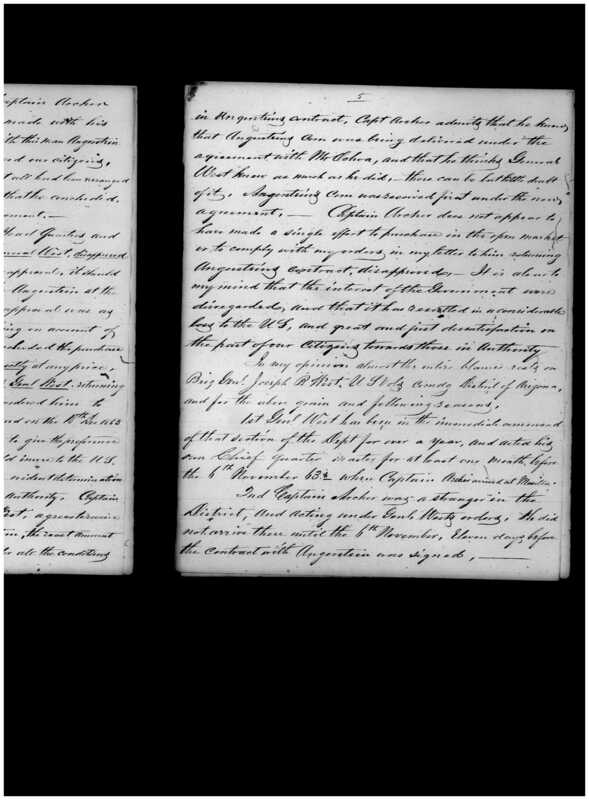 Captain Archer
made with his
with this man Augustin
and our citizens,
all had been arranged
that he concluded.
Head Quarters and
General West, disapproved
approval, it should
Augustin at the
approval was as
on account of
concluded the purchase
at any price,
Genl West, returning
ordered him to
and on the 10th Dec 1863
to give the preference
inure to the U.S.
evident determination
Authority. Captain
the exact amount
all the conditions
5
in Angustins contract, Capt Archer admits that he knew
that Angustins Corn was being delivered under the
agreement with Mr Cobva, and that he thinks General
West knew as much as he did, — there can be but little doubt
of it. Angustins Corn was received first under the new
agreement, — Captain Archer does not appear to
have made a single effort to purchase in the open market
or to comply with my orders in my letter to him returning
Angustins contract, disapproved, — It is clear to
my mind that the interest of the Government were
disregarded, and that it has resulted in a considerable
loss to the U.S, and great and just dissatisfaction on
the part of our Citizens towards those in Authority
In my opinion almost the entire blame rests on
Brig Genl Joseph R West, U.S. Vols comdg District of Arizona,
and for the above grain and following reasons,
1st Genl West has been in the immediate command
of that section of the Dept for over a year, and acted his
own Chief Quarter master for at least one month, before
the 6th November 63. when Captain Archer arrived at Mesilla.
2nd Captain Archer was a stranger in the
District, and acting under Genl Wests orders. He did
not arrive there until the 6th November, Eleven days before
the Contract with Angerstein was signed, —